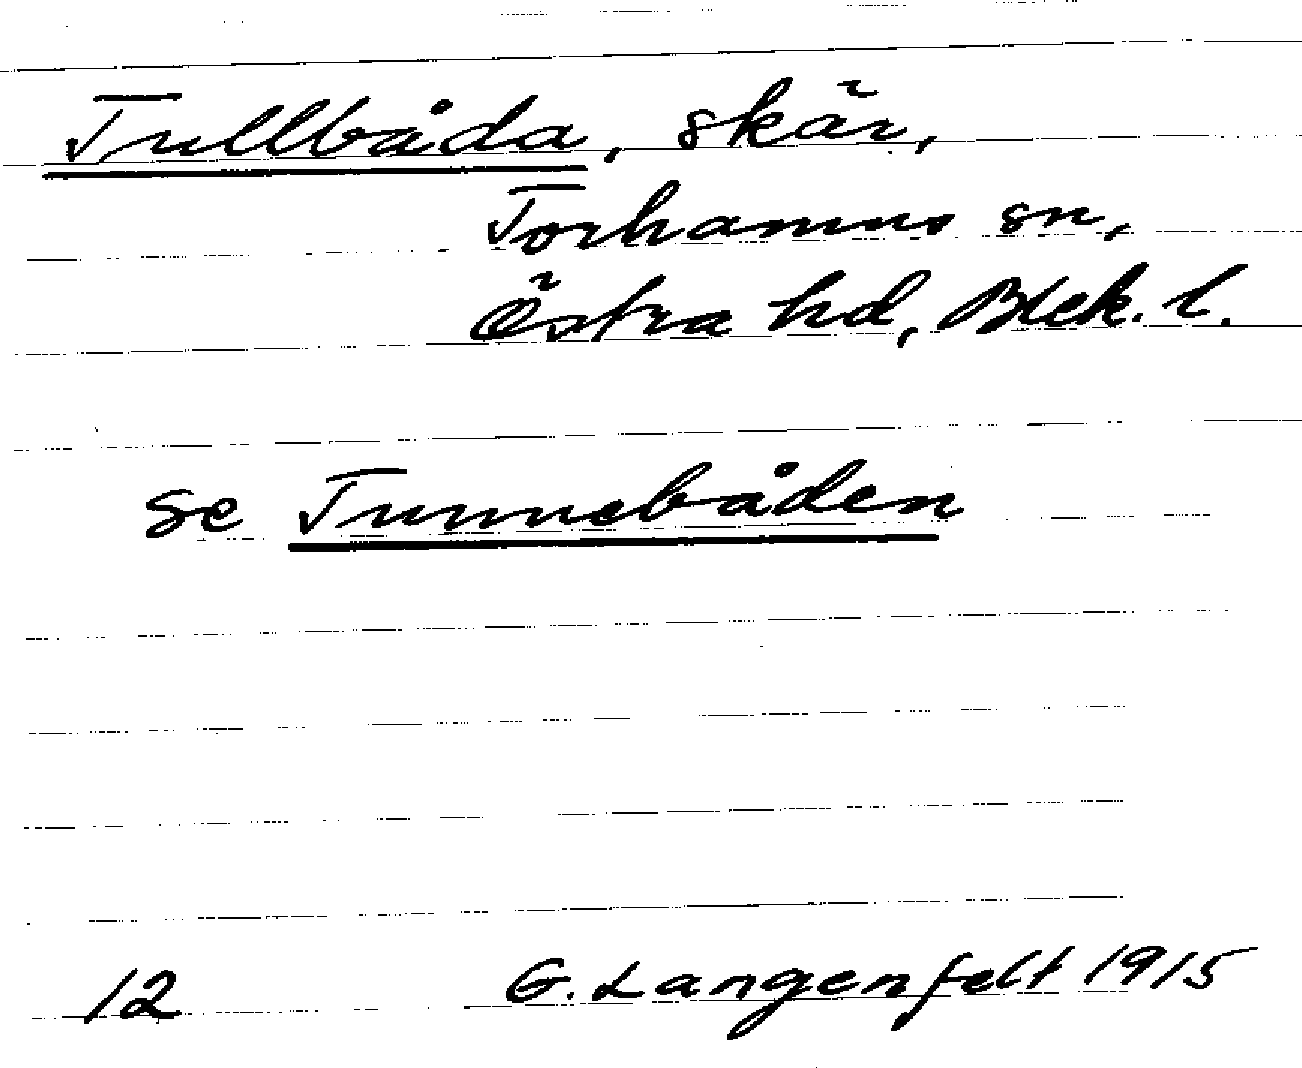 Tullbåda, skär,
Torhamns sn,
Östra hd, Blek. l.
se Tunnebåden
12 G. Langenfelt 1915